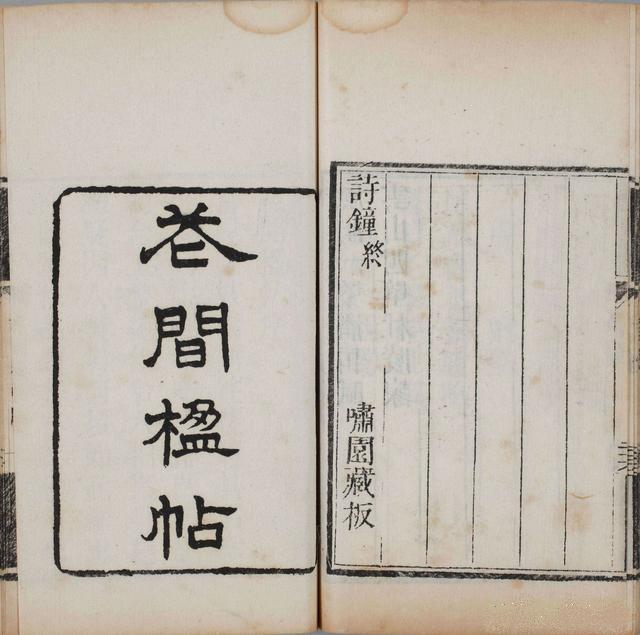 詩鐘終
嘯園藏板
花間楹帖